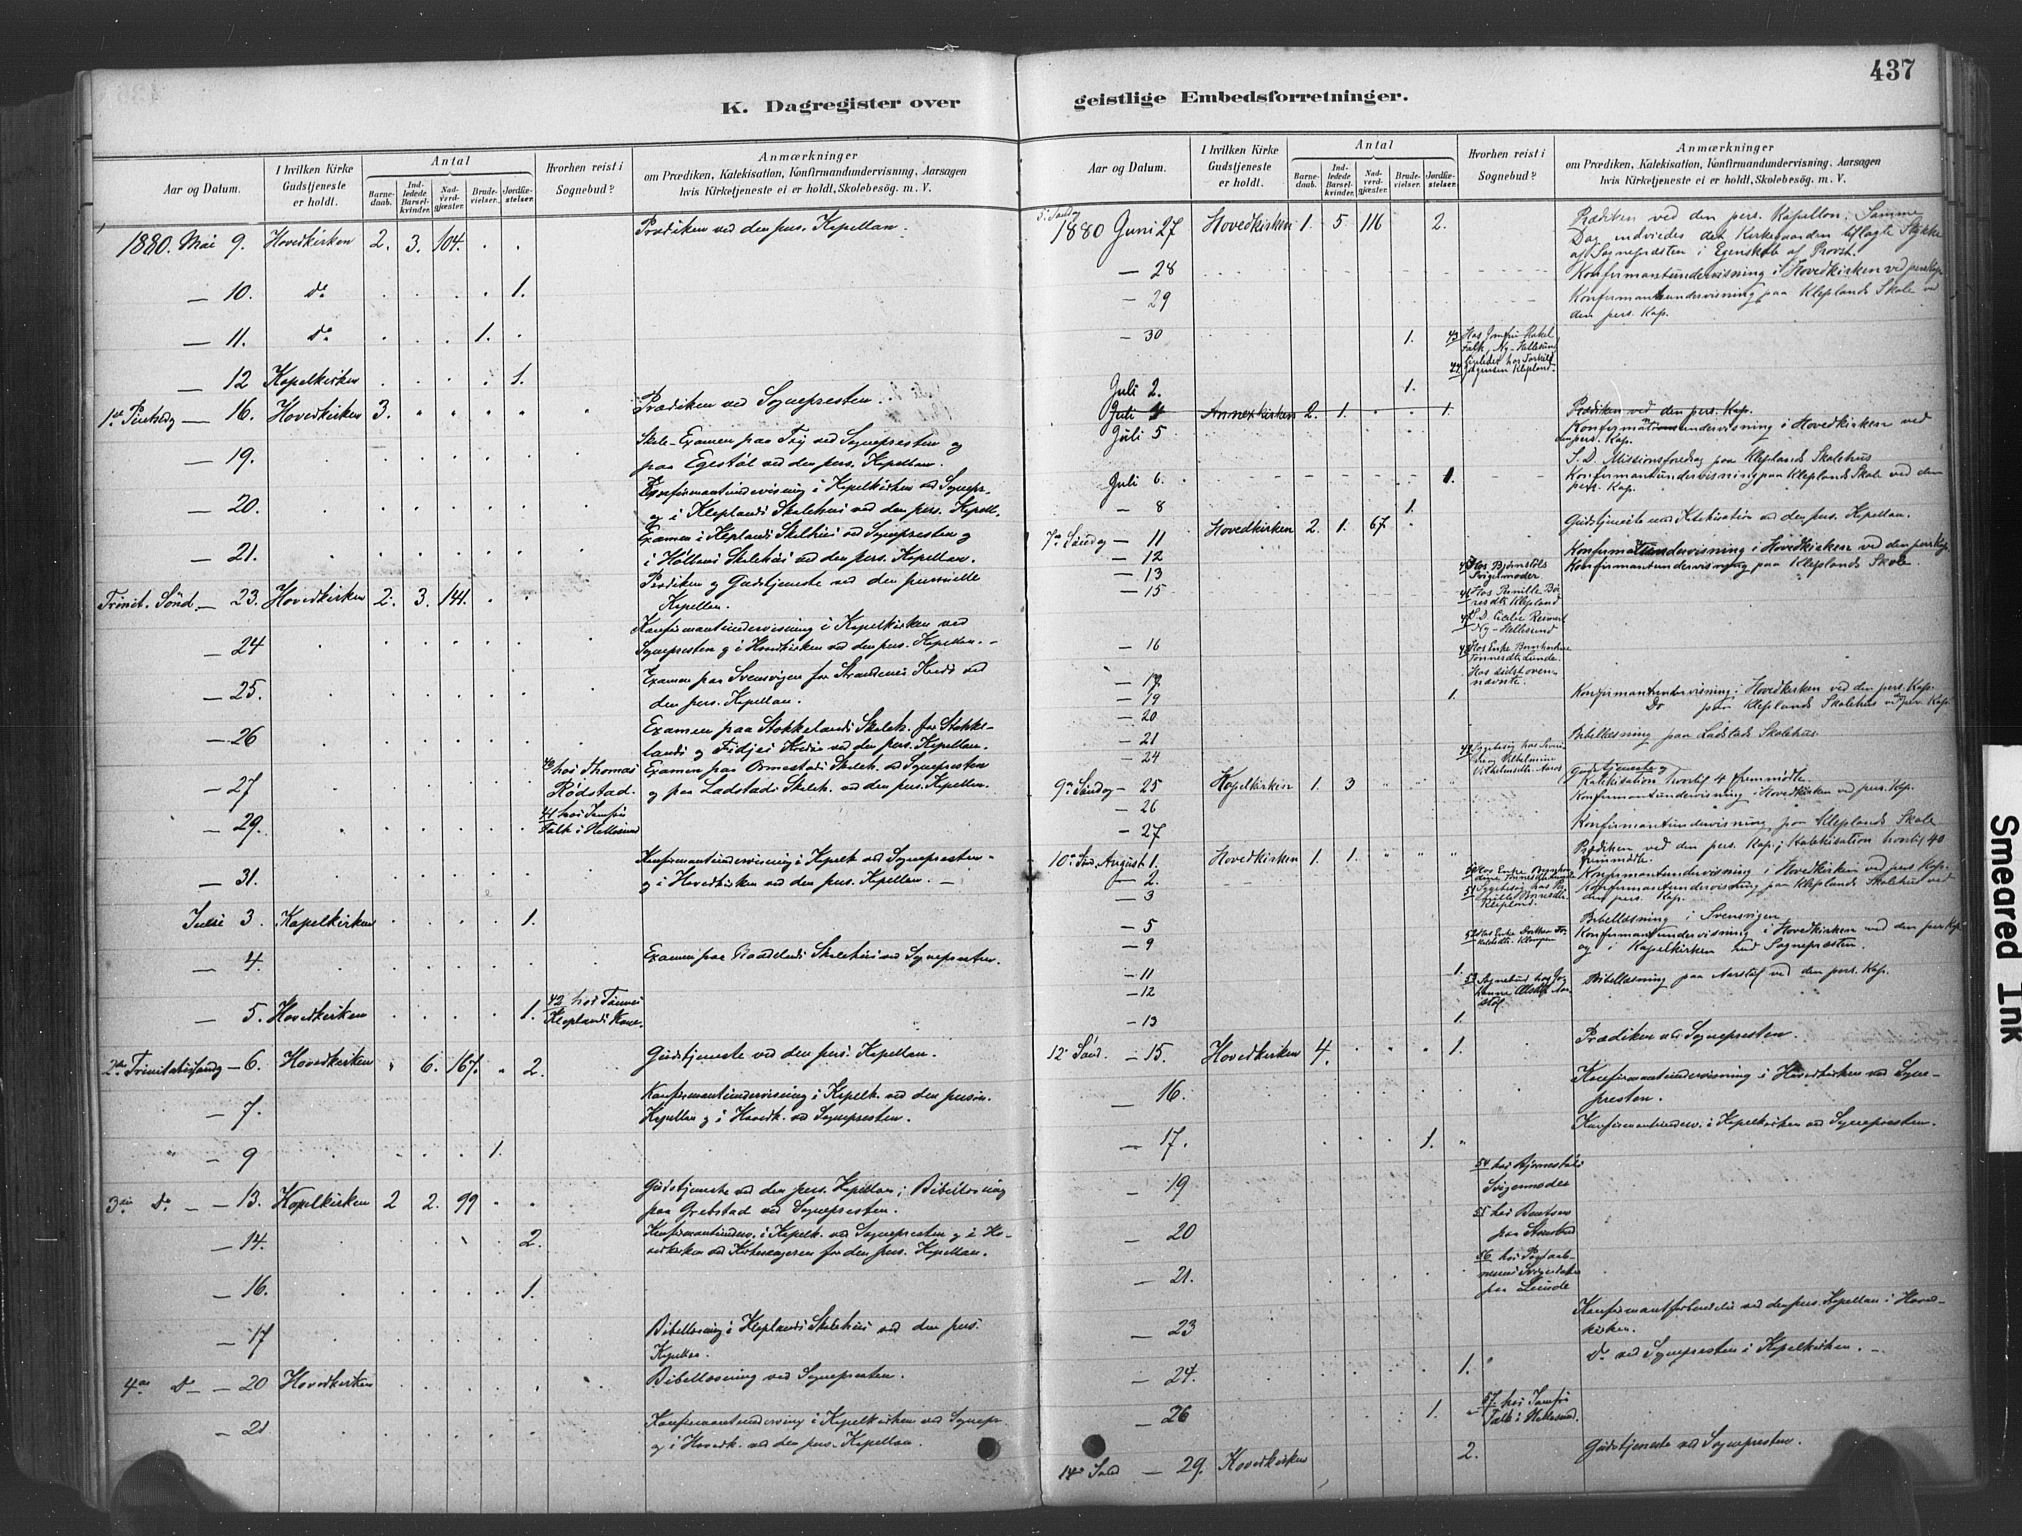 437
K. Dagregister over
geistlige Embedsforretninger.
Aar og Datum.
I hvilken Kirke
Gudstjeneste
er holdt.
Antal
Barne-
daab.
Ind-
ledede
Barsel-
kvinder.
Nad-
verd-
gjæster.
Brude-
vielser.
Jordfæ-
stelser.
Hvorhen reist i
Sognebud?
Anmærkninger
om Prædiken, Katekisation, Konfirmandundervisning, Aarsagen
hvis Kirketjeneste ei er holdt, Skolebesøg. m. V.
1880. Mai 9. Hovedkirken 2. 3. 104. Prædiken ved den pers. Kapellan.
— 10. do 1.
— 11. do 1.
— 12 Kapelkirken 1.
— 16. Hovedkirken 3. Prædiken ved Sognepresten.
— 19. Skole-Examen paa Try ved Sognepresten og
paa Egestøl ved den pers. Kapellan.
— 20. Konfirmantundervisning i Kapelkirken ved Sognepr.
og i Kleplands Skolehus ved den pers. Kapell.
— 21. Examen i Kleplands Skolehus ved Sognepresten og
i Høllens Skolehus ved den pers. Kapellan.
Trinit. Sønd — 23. Hovedkirken 2. 3. 141. Prædiken og Gudstjeneste ved den personelle
Kapellan.
— 24 Konfirmantundervisning i Kapelkirken ved
Sognepresten og i Hovedkirken ved den pers. Kapellan.
— 25. Examen paa Svensvigen for Strandens Kreds ved
den pers. Kapellan.
— 26 Examen paa Stokkelands Skoleh. for Stokke-
lands og Fidjes Kredse ved den pers. Kapellan.
— 27 40 hos Thomas
Rødstad.
Examen paa Ormestads Skoleh. ved Sognepresten
og paa Ladstads Skoleh. ved den pers. Kapellan.
— 29. 41 hos Jomfru
Falk i Hellesund
— 31. Konfirmantundervisning i Kapelk. ved Sognepresten
og i Hovedkirken ved den pers. Kapellan. —
Juni 3. Kapelkirken 1.
— 4. Examen paa Skolehus ved Sognepresten.
— 5. Hovedkirken 1. 42 hos Tønnes
Kleplands Kone.
2den Trinitatissøndg — 6. Hovedkirken 6. 167. 2. Gudstjeneste ved den pers. Kapellan.
— 7. Konfirmantundervisning i Kapelk. ved den person.
Kapellan og i Hovedk. ved Sognepresten.
— 9 1.
3die Do — 13. Kapelkirken 2 2. 99 Gudstjeneste ved den pers. Kapellan; Bibellæsning
paa Grebstad ved Sognepresten.
— 14. 2. Konfirmantunderv. i Kapelk. ved Sognepresten og i Ho-
vedkirken ved Kirkesangeren for den pers. Kapellan.
— 16. 1.
— 17 Bibellæsning i Kleplands Skolehus ved den pers.
Kapellan.
4de Do — 20 Hovedkirken Bibellæsning ved Sognepresten.
— 21 Konfirmantunderving i Kapelkirken ved Sognepr.
og i Hovedk. ved den pers. Kapellan.
1880 Juni 27 Hovedkirken 1. 5. 116 2. Prædiken ved den pers. Kapellan; Samme
Dag indviedes det Kirkegaarden tillagte Stykke
af Sognepræsten i Egenskab af Provst.
— 28 Konfirmantundervisning i Hovedkirken ved pers. Kap.
— 29 Konfirmantundervisning paa Kleplands Skole ved
den pers. Kap.
— 30 1. 43 Hos Jomfru Rakel
Falk, Ny-Hellesund
Juli 2. 1.
Juli 4 Annexkirken 2. 1. 1. Prædiken ved den pers. Kap.
Juli 5 Konfirmantundervisning i Hovedkirken ved
den pers. Kap.
S. D. Missionsforedrag paa Kleplands Skolehus
Juli 6. 1. Konfirmantundervisning paa Kleplands Skole ved den
pers. Kap.
— 8 1.
7de Søndag — 11 Hovedkirken 2. 1. 67 Gudstjeneste med Katekisation ved den pers. Kapellan.
— 12 Konfirmantundervisning i Hovedkirken ved den pers Kap.
— 13 Hos Bjørnstøls
Svigermoder
Konfirmantundervisning paa Kleplands Skole
— 15
— 16
— 17
— 19 1. Konfirmantundervisning i Hovedkirken ved den pers. Kap.
— 20 Do paa Kleplands Skolehus ved pers. Kap.
— 21 Bibellæsning paa Ladstads Skolehus.
— 24
9de Søndag — 25 Kapelkirken 1. 3 Gudstjeneste og
Katekisation hvortil 4 fremmødte.
— 26 Konfirmantundervisning i Hovedkirken ved pers. Kap.
— 27 Konfirmantundervisning paa Kleplands Skole
10de Sønd. August 1. Hovedkirken 1. 1. Prædiken ved den pers. Kap.; Katekisation hvortil 40
fremmødte.
— 2. Konfirmantundervisning i Hovedkirken ved pers. Kap.
— 3 Konfirmantundervisning paa Kleplands Skolehus ved
den pers. Kap.
— 5 Bibellæsning i Svensvigen
— 9 Konfirmantundervisning i Hovedkirken ved den pers Kap.
og i Kapelkirken ved Sognepræsten.
— 11 1. Bibellæsning paa Aarstøl ved den pers. Kap.
— 12 53 Sognebud hos
— 13 1.
12te Sønd. — 15. Hovedkirken 4. 1. Prædiken ved Sognepresten.
— 16. Konfirmantundervisning i Hovedkirken ved Sogne-
presten.
— 17. 1. Konfirmantunderv. i Kapelkirken ved Sognepresten.
— 19 54 hos Bjørnestøls
Svigermoder
— 20 55 hos Bentsen
— 21. 56 hos
— 23 Konfirmantforberedelse ved den pers. Kapellan i Hoved-
kirken.
— 24. 1. Do ved Sognepresten i Kapelkirken. —
— 26 1. 57 hos Jomfru
Falk i Hellesund.
14de Sønd — 29. Hovedkirken 2. Gudstjeneste ved Sognepresten.
Smeared Ink